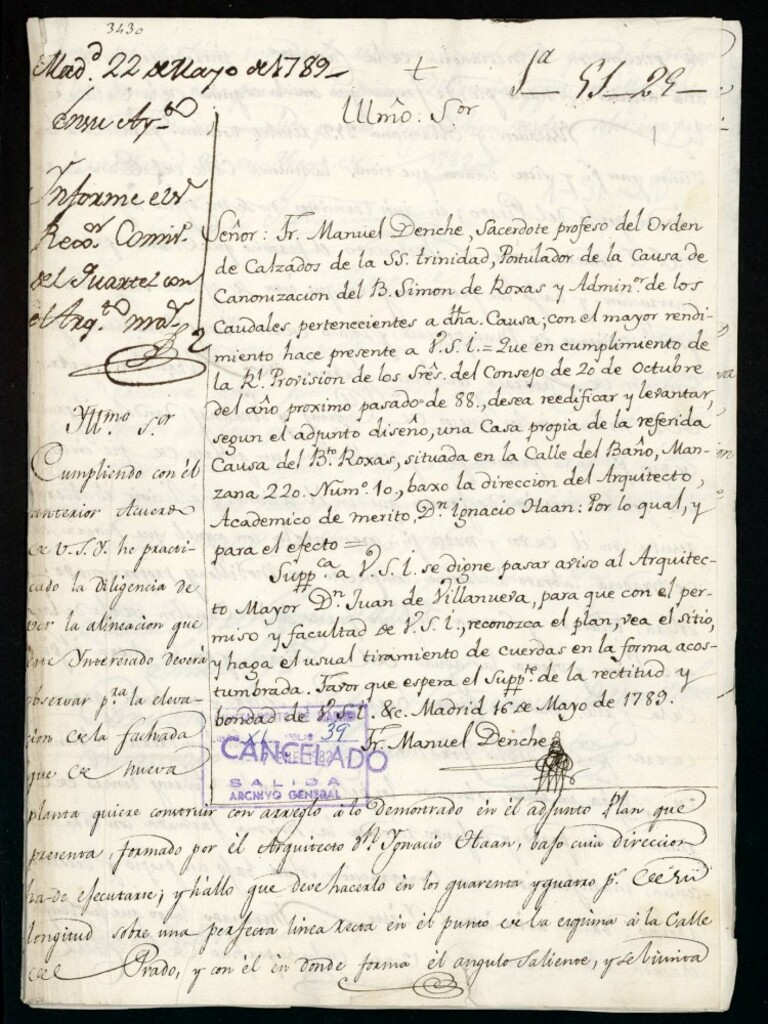 3430
Madd. 22 de Mayo de 1789
+
1a 51-29
Illmo: Sor
Informe el Sr
Reor. Comiso.
del Quartel con
el Arqto. mor.
Señor: Fr. Manuel Denche, Sacerdote profeso del Orden
de Calzados de la SS. trinidad, Postulador de la Causa de
Canonizacion del B. Simon de Roxas y Adminor. de los
Caudales pertenecientes a dha. Causa; con el mayor rendi-
miento hace presente a V.S.I. = Que en cumplimiento de
la Rl. Provision de los Sres. del Consejo de 20 de Octubre
del año proximo pasado de 88., desea reedificar y levantar,
segun el adjunto diseño, una Casa propia de la referida
Causa del Bto. Roxas, situada en la Calle del Baño, Man-
zana 220. Numo. 10., baxo la direccion del Arquitecto,
Academico de merito, Dn. Ignacio Haan: Por lo qual, y
para el efecto =
Suppca. a V.S.I. se digne pasar aviso al Arquitec-
to Mayor Dn. Juan de Villanueva, para que con el per-
miso y facultad de V.S.I., reconozca el plan, vea el sitio,
y haga el usual tiramiento de cuerdas en la forma acos-
tumbrada. Favor que espera el Suppte. de la rectitud y
bondad de V.S.I. &c. Madrid 16 de Mayo de 1789.
Fr. Manuel Denche
39
CANCELADO
SALIDA
ARCHIVO GENERAL
Yllmo Sor
Cumpliendo con él
anterior Acuerdo
de V.S.Y. he practi-
cado la diligencia de
ver la alineacion que
este Ynteresado deverá
observar pra. la eleva-
cion de la fachada
que de nueva
planta quiere construir con arreglo á lo Demostrado en él adjunto Plan que
presenta, formado por él Arquitecto Dn. Ygnacio Haan, bajo cuia direccion
ha de ejecutarse; y hállo que deve hacerlo en los quarenta y quatro ps. de su
longitud sobre una perfecta linea recta en él punto de la esquina á la Calle
del Prado, y con él en donde forma él angulo saliente, y se